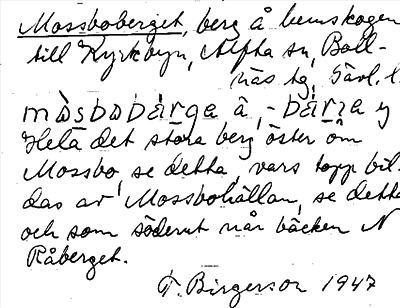 Mossboberget, berg å hemskogen
till Kyrkbyn, Alfta sn, Boll-
näs tg, Gävl. l.
mòsbobærga å, - bærja y
Hela det stora berg öster om
Mossbo, se detta, vars topp bil-
das av Mossbohällan, se detta
och som söderut når bäcken N
Råberget.
T. Birgerson 1947